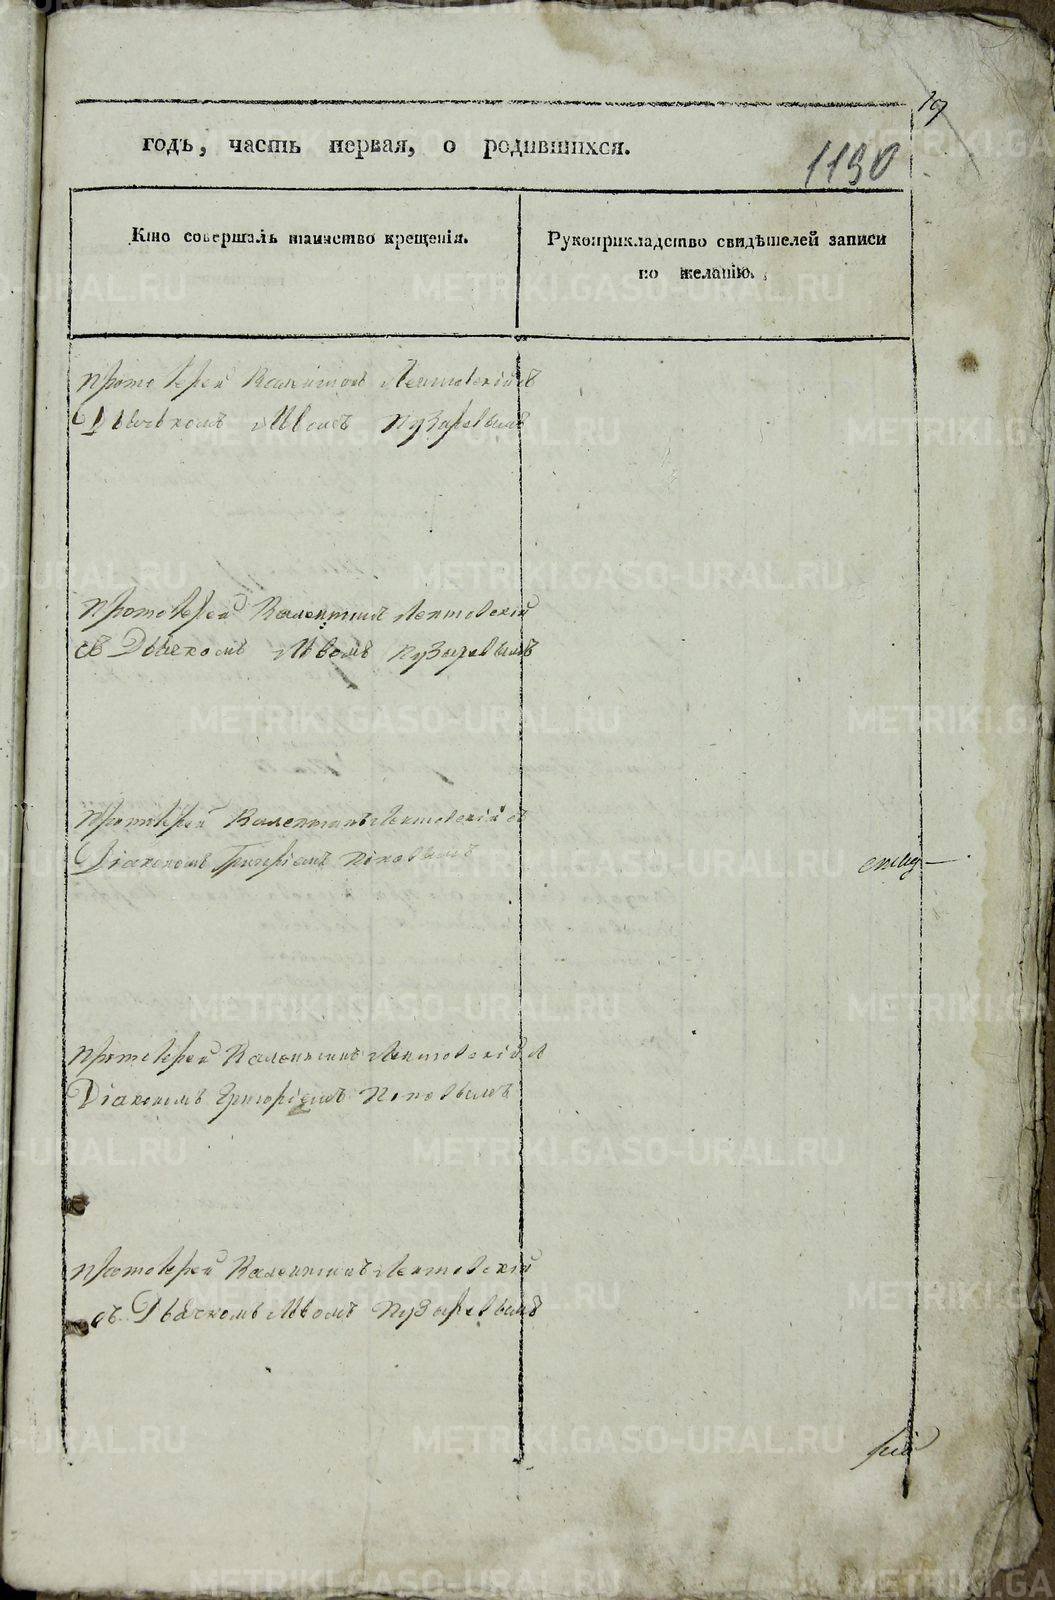 19
годъ, часть первая, о родившихся.
1190
Кто совершалъ таинство крещенія.
Рукоприкладство свидѣтелей записи
по желанію.
Протоіерей Валентинъ Лентовскій съ
Дьячкомъ Львомъ Пузыревымъ
Протоіерей Валентинъ Лентовскій
съ Дьячкомъ Львомъ Пузыревымъ
Протоіерей Валентинъ Лентовскій съ
Діакономъ Григоріемъ Поповымъ
Протоіерей Валентинъ Лентовскій съ
Діакономъ Григоріемъ Поповымъ
Протоіерей Валентинъ Лентовскій
съ Дьячкомъ Львомъ Пузыревымъ
METRIKI.GASO-URAL.RU